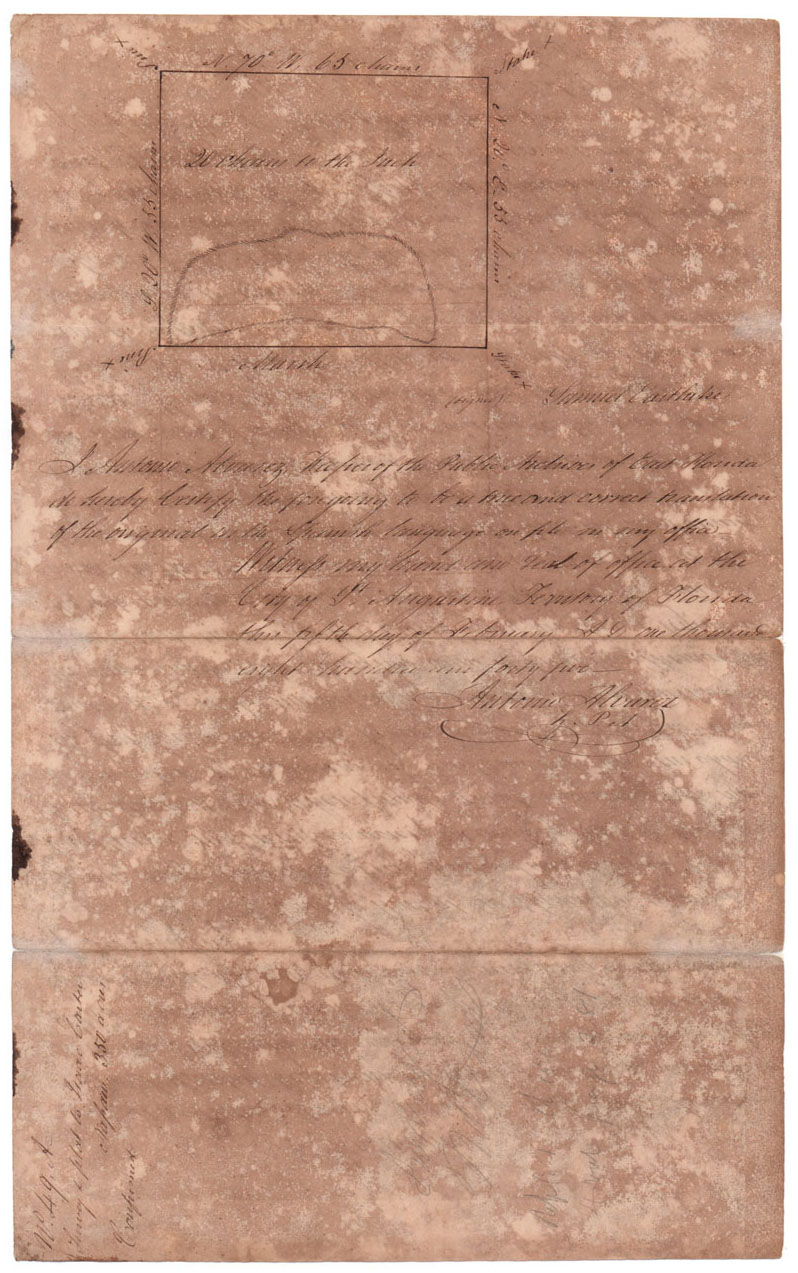 Pine x
N 70° W 65 chains
Stake x
S 20° W 55 chains
20 chains to the Inch
N 20° E 55 chains
Pine x
Marsh
Stake x
(signed) Samuel Eastlake
I Antonio Alvarez, Keeper of the Public Archives of East Florida
do hereby Certify the foregoing to be a true and correct translation
of the original in the Spanish language on file in my office
Witness my hand and seal of office at the
City of St Augustine Territory of Florida
this fifth day of February A D one thousand
eight hundred and forty
Antonio Alvarez
K. P. A
No. 49 A
Survey & plat to Isaac Carter
Nassau 350 acres
Confirmed